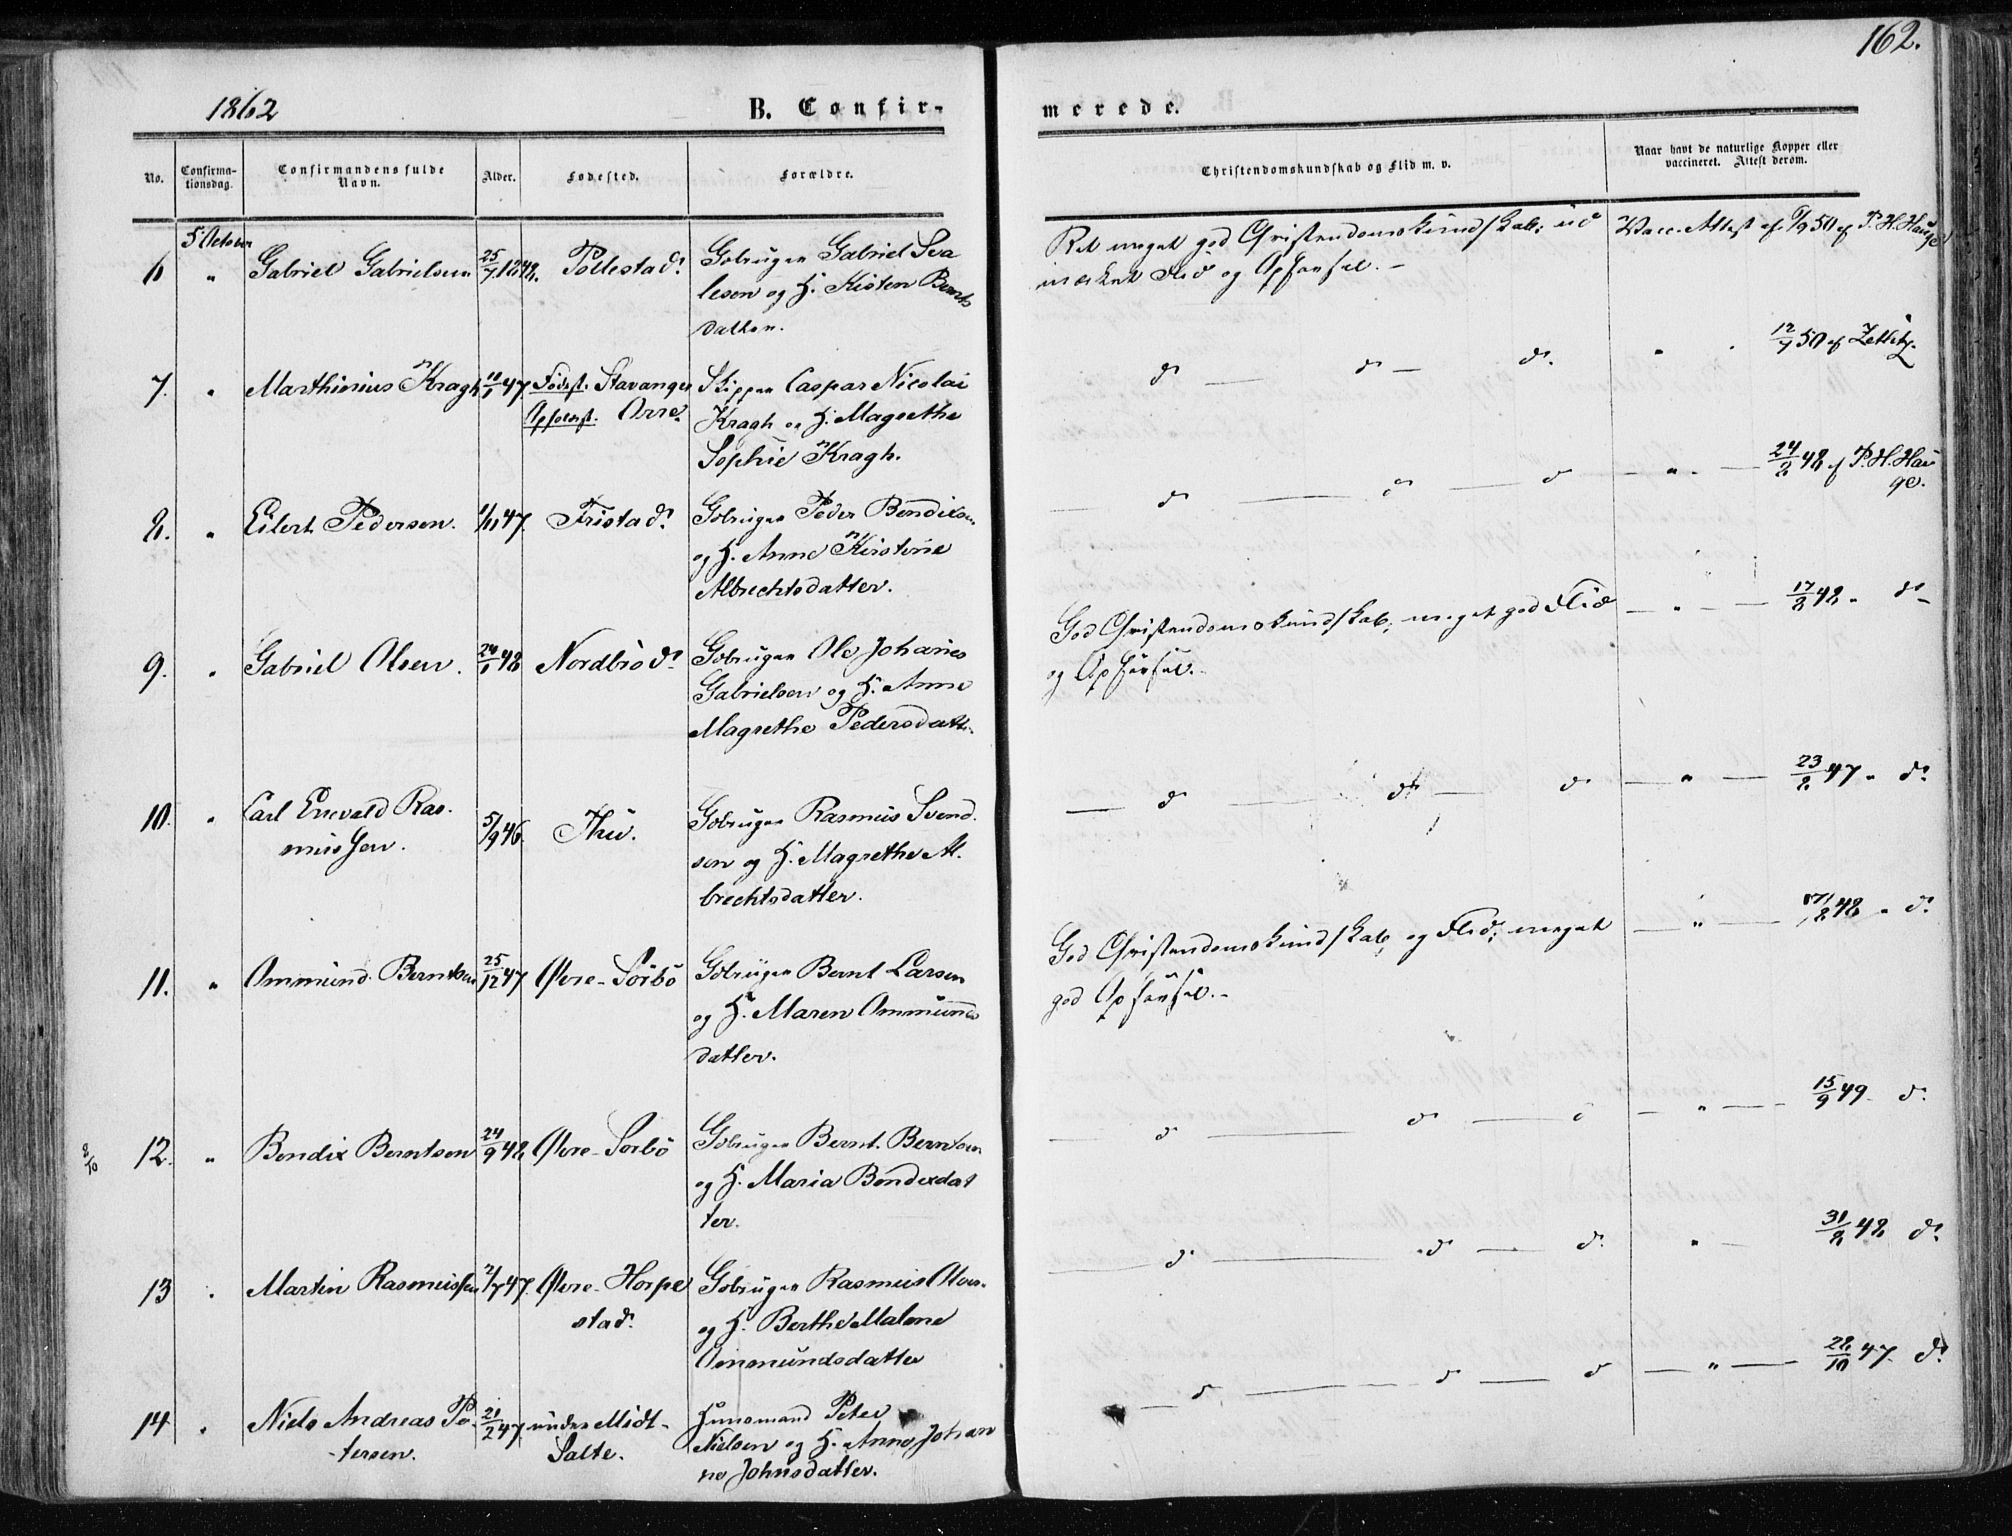 162.
1862
B. Confir-
merede.
No.
Confirma-
tionsdag.
Confirmandens fulde
Navn.
Alder.
Fødested.
Forældre.
Christendomskundskab og Flid m. v.
Naar havt de naturlige Kopper eller
vaccineret. Attest derom.
5 October
6 " Gabriel Gabrielsen 25/7 1848. Pollestad. Gbruger Gabriel Sva
leson og H. Kisten Bernts
datter.
Ret meget god Christendomskundskab; ud
mærket Flid og Opførsel. –
Vacc. Attest af 6/9 50 af P. H. Hau
ge
7. " Marthinius Kragh 11/1 47. Fødest. Stavanger
Opholdsst. Orre.
Skipper Caspar Nicolai
Kragh og H. Magrethe
Sophie Kragh.
d — d — d. " 12/7 50 af Zetlitz.
8. " Eilert Pedersen. 1/11 47. Fristad. Gbruger Peder Bendixsen
og H. Anne Kirstine
Albrechtsdatter.
d — d — d — " — 24/2 48 af P. H. Hau
ge.
9. " Gabriel Olsen. 24/1 48 Nordbrød. Gbruger Ole Johanes
Gabrielsen og H. Anne
Magrethe Pedersdatt.
God Christendomskundskab; meget god Flid
og Opførsel. –
— " — 17/8 48 " d –
10. " Carl Enevald Ras-
mussen.
5/9 46. Thu. Gbruger Rasmus Svend-
sen og H. Magrethe Al-
brechtsdatter.
— d — d — d — " — 23/2 47 " d.
11. " Ommund Berntsen 25/12 47 Øvre-Sörbö Gbruger Bernt Larsen
og H. Maren Ommunds
datter.
God Christendomskundskab og Flid; meget
god Opførsel. –
— " — 17/8 48 " d.
8/10
12. " Bendix Berntsen 24/9 48 Øvre-Sorbö Gbruger Bernt Berntsen
og H. Maria Bendixdat
ter.
— d — d — d — " — 15/9 49 - d.
13 " Martin Rasmussen 2/7 47. Øvre-Horpe
stad.
Gbruger Rasmus Olsen
og H. Berthe Malene
Ommundsdatter
— d — d — d. " – 31/8 48 d.
14 " Niels Andreas Pe-
tersen.
21/2 47 under Midt-
Salte.
Huusmand Peter
Nielsen og H. Anne Johan
ne Johnsdatter.
— d — d — d — " — 28/10 47. d.